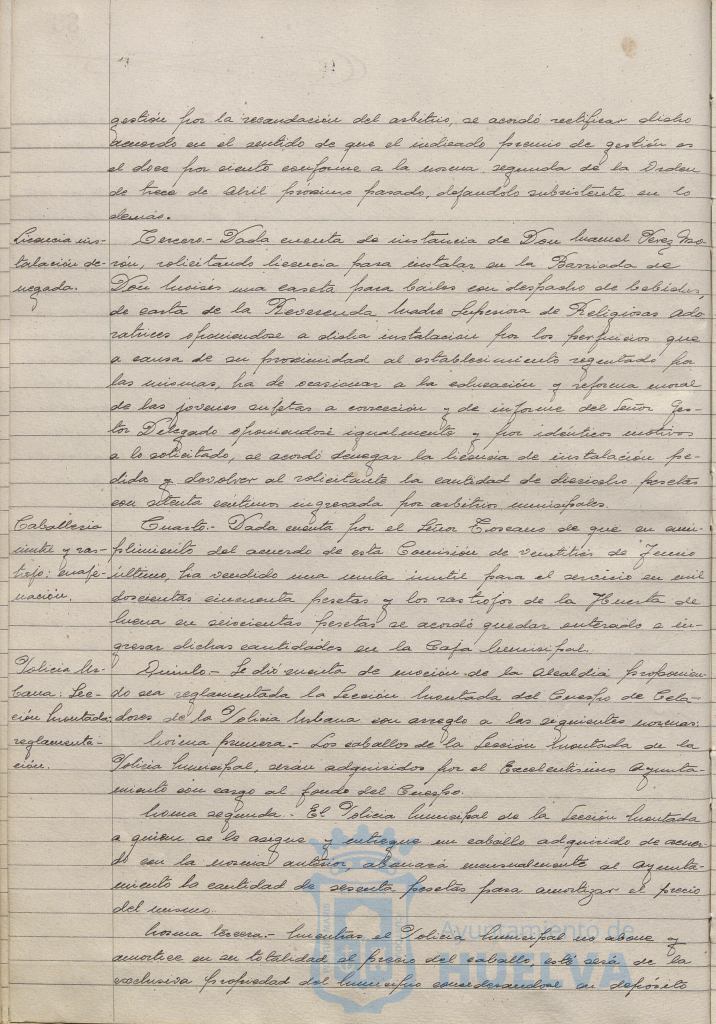 gestión por la recaudación del arbitrio, se acordó rectificar dicho
acuerdo en el sentido de que el indicado premio de gestión es
el doce por ciento conforme a la norma segunda de la Orden
de trece de Abril próximo pasado, dejandolo subsistente en lo
demás.
Licencia ins-
talación de-
negada.
Tercero.- Dada cuenta de instancia de Don Manuel Perez Mo-
rón, solicitando licencia para instalar en la Barriada de
Don Moisés una caseta para bailes con despacho de bebidas,
de carta de la Reverenda Madre Superiora de Religiosas Ado-
ratrices oponiendose a dicha instalación por los perjuicios que
a causa de su proximidad al establecimiento regentado por
las mismas, ha de ocasionar a la educación y reforma moral
de las jovenes sujetas a corrección y de informe del Señor Ges-
tor Delegado oponiendose igualmente y por idénticos motivos
a lo solicitado, se acordó denegar la licencia de instalación pe-
dida y devolver al solicitante la cantidad de dieciocho pesetas
con setenta céntimos ingresada por arbitrios municipales.
Caballeria
inutil y ras-
trojo: enaje-
nación.
Cuarto.- Dada cuenta por el Señor Toscano de que en cum-
plimiento del acuerdo de esta Comisión de veintitrés de Junio
último, ha vendido una mula inutil para el servicio en mil
doscientas cincuenta pesetas y los rastrojos de la Huerta de
Mena en seiscientas pesetas se acordó quedar enterado e in-
gresar dichas cantidades en la Caja Municipal.
Policia Ur-
bana: Sec-
ción Montada:
reglamenta-
ción.
Quinto.- Se dió cuenta de moción de la Alcaldia proponien-
do sea reglamentada la Sección Montada del Cuerpo de Cela-
dores de la Policia Urbana con arreglo a las siguientes normas:
Norma primera.- Los caballos de la Sección Montada de la
Policia Municipal, serán adquiridos por el Excelentisimo Ayunta-
miento con cargo al fondo del Cuerpo.
Norma segunda.- El Policia Municipal de la Sección Montada
a quien se le asigne y entregue un caballo adquirido de acuer-
do con la norma anterior, abonará mensualmente al Ayunta-
miento la cantidad de sesenta pesetas para amortizar el precio
del mismo.
Norma tercera.- Mientras el Policia Municipal no abone y
amortice en su totalidad el precio del caballo este será de la
exclusiva propiedad del Municipio considerandose en depósito
Ayuntamiento de
HUELVA